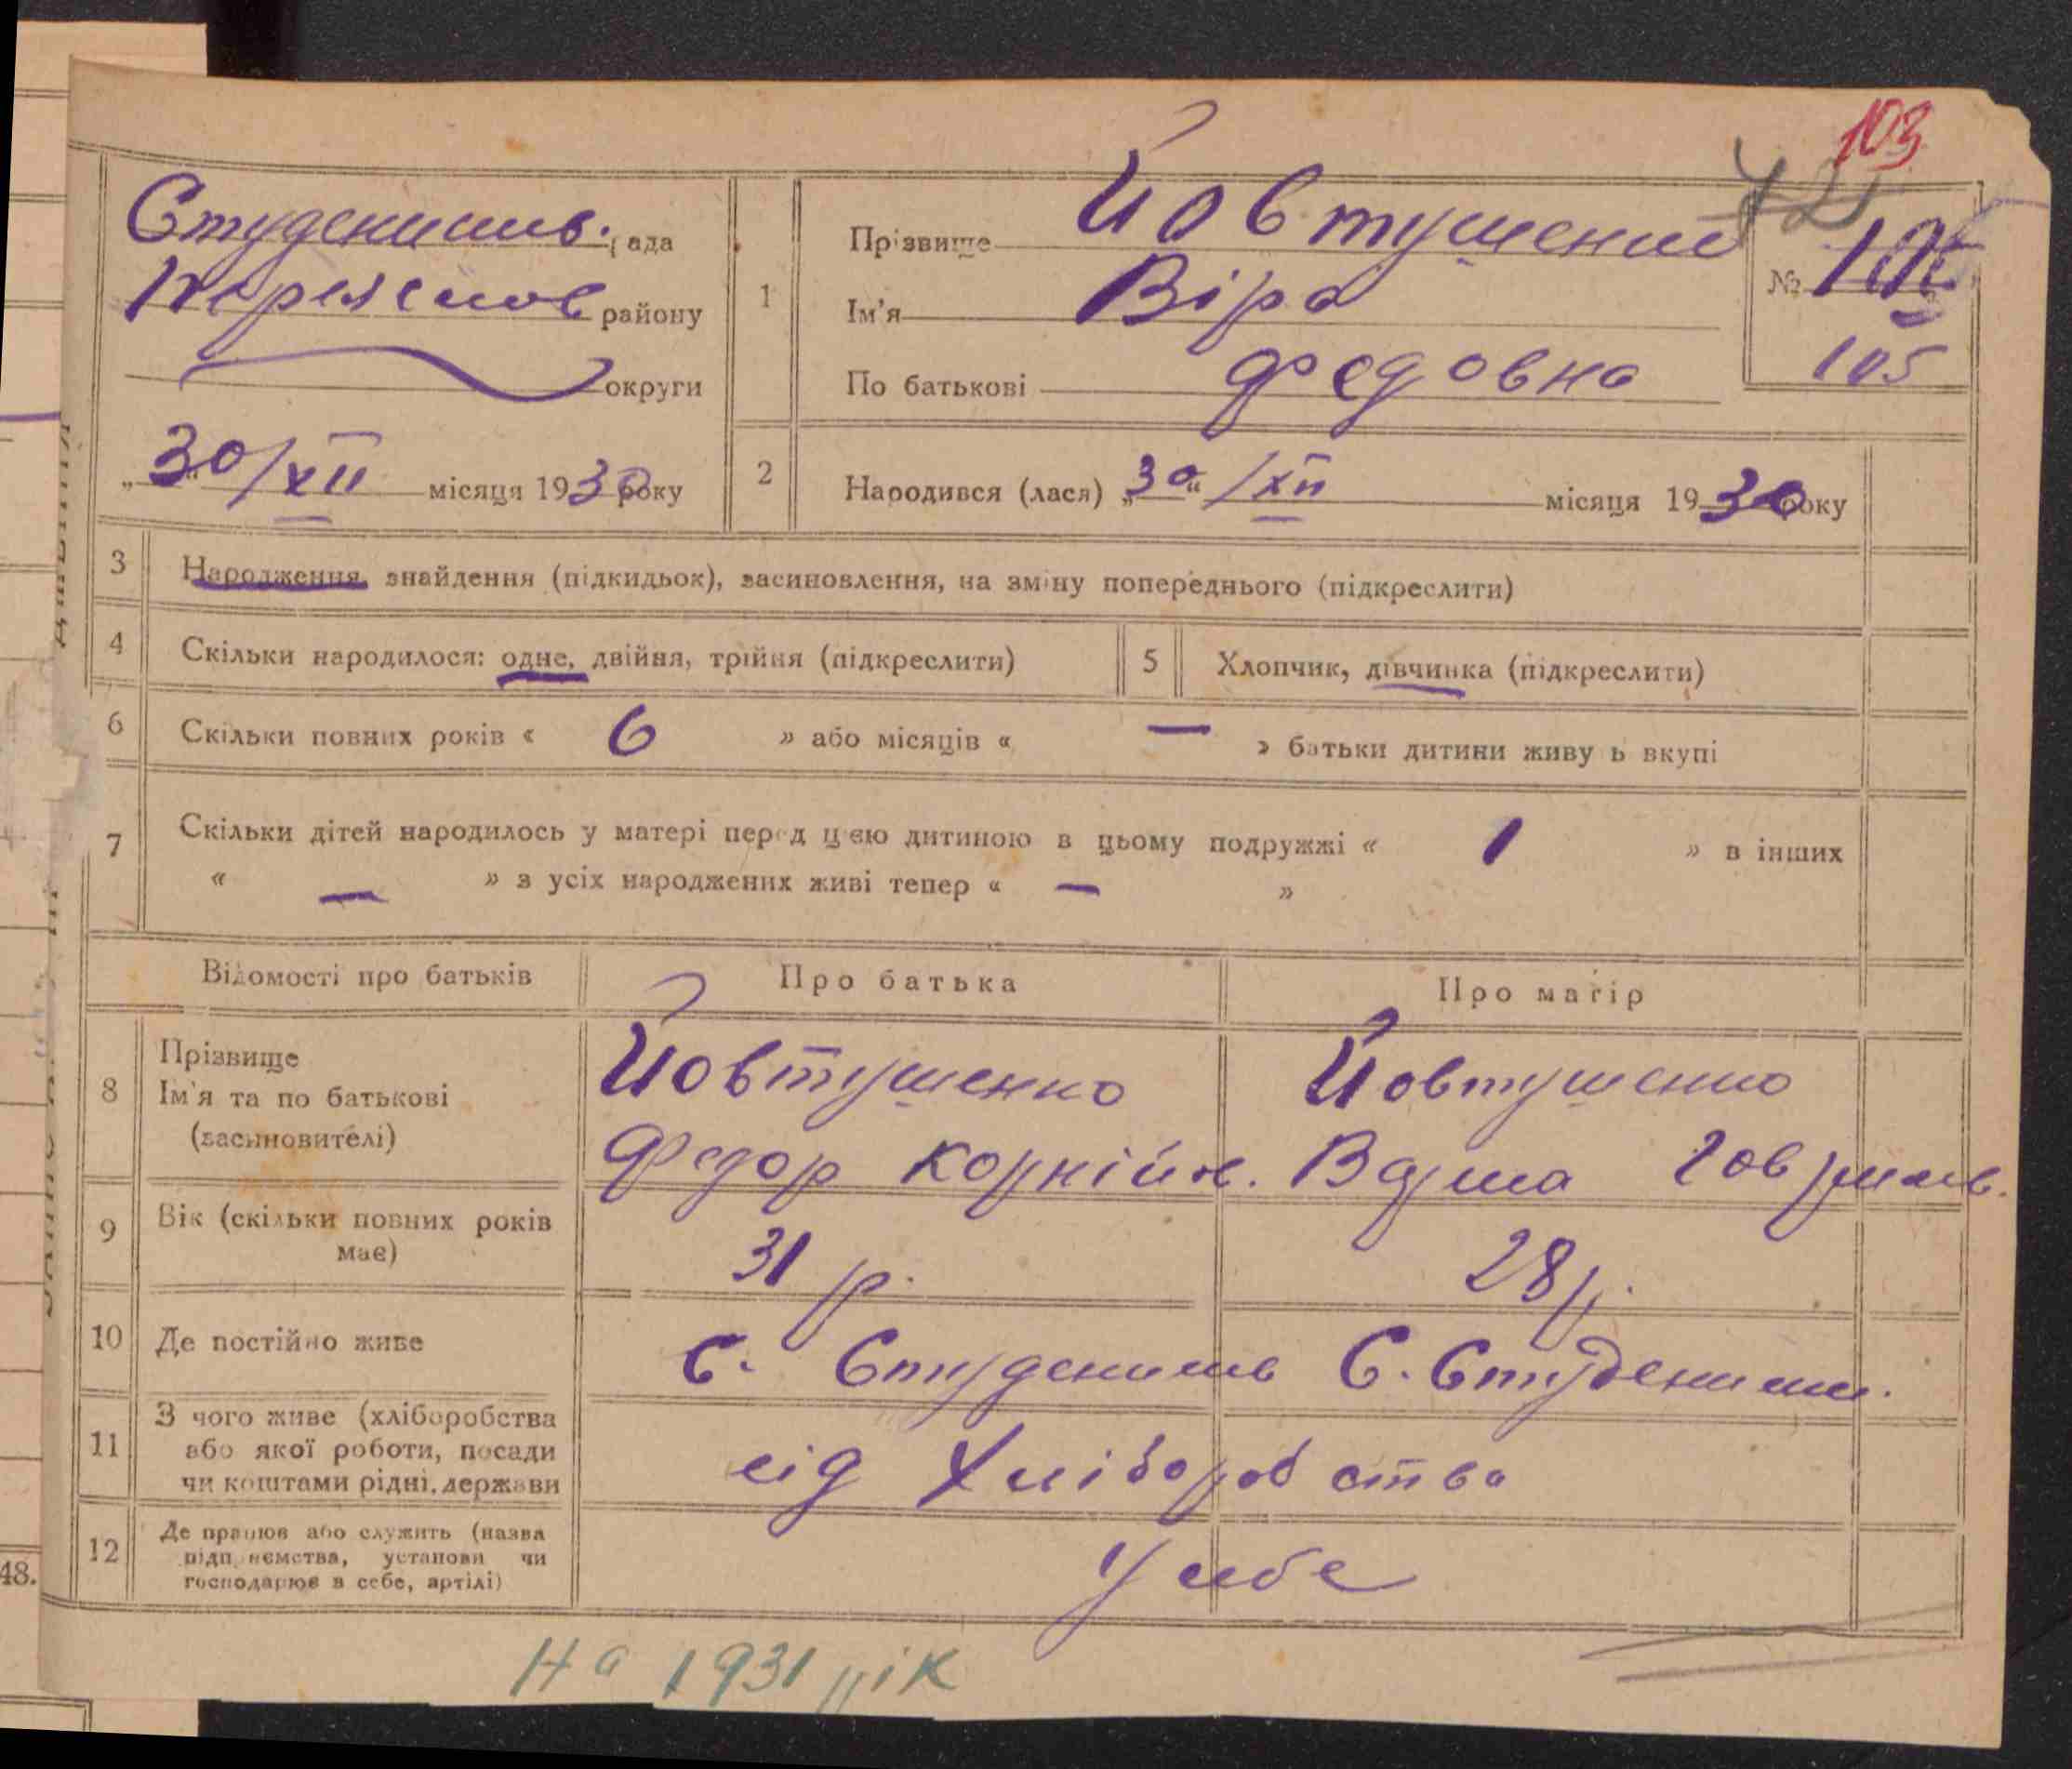 103
42
Студеникив. рада
Переяслов району
округи
„30“/XII місяця 1930 року
1
Прізвище Йовтушенко
Ім'я Віра
По батькові Федовна
№ 106
105
2
Народився (лася) „30“ /XII місяця 1930 року
3 Народження, знайдення (підкидьок), засиновлення, на зміну попереднього (підкреслити)
4 Скільки народилося: одне, двійня, трійня (підкреслити)
5 Хлопчик, дівчинка (підкреслити)
6 Скільки повних років « 6 » або місяців « — » батьки дитини живуть вкупі
7 Скільки дітей народилось у матері перед цією дитиною в цьому подружжі « 1 » в інших
« — » з усіх народжених живі тепер « — »
Відомості про батьків Про батька Про матір
8 Прізвище
Ім'я та по батькові
(засиновителі)
Йовтушенко
Федор Корнійов.
Йовтушенко
Варка Говрилов.
9 Вік (скільки повних років
має)
31 р. 28 р.
10 Де постійно живе с. Студеников С. Студеники.
11 З чого живе (хліборобства
або якої роботи, посади
чи коштами рідні, держави
від Хліборобства
12 Де працює або служить (назва
підприємства, установи чи
господарює в себе, артілі)
У себе
На 1931 рік
48.